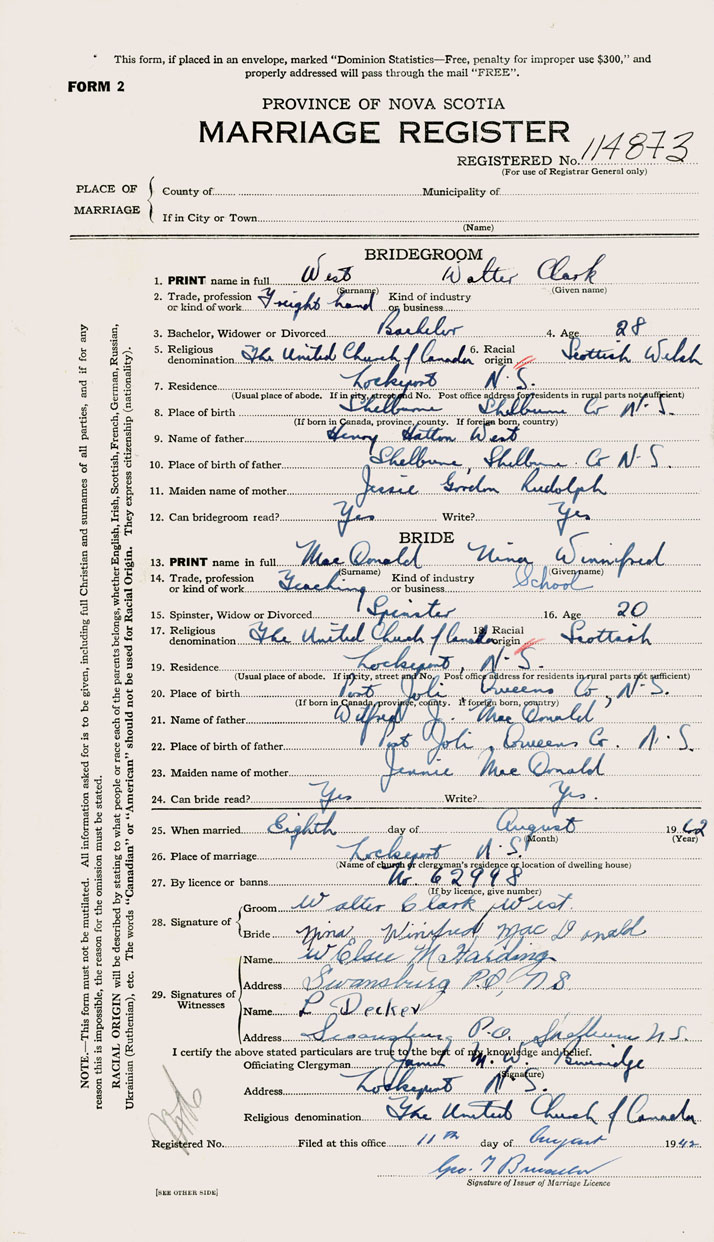 This form, if placed in an envelope, marked "Dominion Statistics—Free, penalty for improper use $300," and
properly addressed will pass through the mail "FREE".
FORM 2
PROVINCE OF NOVA SCOTIA
MARRIAGE REGISTER
REGISTERED No. 114873
(For use of Registrar General only)
PLACE OF MARRIAGE
County of Municipality of
If in City or Town
(Name)
BRIDEGROOM
1. PRINT name in full West Walter Clark
(Surname) (Given name)
2. Trade, profession or kind of work Freight hand Kind of industry or business
3. Bachelor, Widower or Divorced Bachelor 4. Age 28
5. Religious denomination The United Church of Canada 6. Racial origin Scottish Welsh
7. Residence Lockeport N.S.
(Usual place of abode. If in city, street and No. Post office address for residents in rural parts not sufficient)
8. Place of birth Shelburne Shelburne Co N.S.
(If born in Canada, province, county. If foreign born, country)
9. Name of father Henry Hatton West
10. Place of birth of father Shelburne, Shelburne Co N.S.
11. Maiden name of mother Jessie Gordon Rudolph
12. Can bridegroom read? Yes Write? Yes
BRIDE
13. PRINT name in full MacDonald Nina Winnifred
(Surname) (Given name)
14. Trade, profession or kind of work Teaching Kind of industry or business School
15. Spinster, Widow or Divorced Spinster 16. Age 20
17. Religious denomination The United Church of Canada 18. Racial origin Scottish
19. Residence Lockeport, N.S.
(Usual place of abode. If in city, street and No. Post office address for residents in rural parts not sufficient)
20. Place of birth Port Joli Queens Co, N.S.
(If born in Canada, province, county. If foreign born, country)
21. Name of father Wilfred J. MacDonald
22. Place of birth of father Port Joli, Queens Co. N.S.
23. Maiden name of mother Jennie MacDonald
24. Can bride read? Yes Write? Yes.
25. When married Eighth day of August 1942
(Month) (Year)
26. Place of marriage Lockeport N.S.
(Name of church or clergyman's residence or location of dwelling house)
27. By licence or banns No. 62998
(If by licence, give number)
28. Signature of
Groom Walter Clark West.
Bride Nina Winifred MacDonald
29. Signatures of Witnesses
Name W Elsie M Harding
Address Swansburg P.O, N.S.
Name L Decker
Address P.O. N.S.
I certify the above stated particulars are true to the best of my knowledge and belief.
Officiating Clergyman M. W.
(Signature)
Address Lockeport N.S.
Religious denomination The United Church of Canada
Registered No. Filed at this office 11th day of August 1942
Geo. T
Signature of Issuer of Marriage Licence
[SEE OTHER SIDE]
NOTE.—This form must not be mutilated. All information asked for is to be given, including full Christian and surnames of all parties, and if for any
reason this is impossible, the reason for the omission must be stated.
RACIAL ORIGIN will be described by stating to what people or race each of the parents belongs, whether English, Irish, Scottish, French, German, Russian,
Ukrainian (Ruthenian), etc. The words "Canadian" or "American" should not be used for Racial Origin. They express citizenship (nationality).